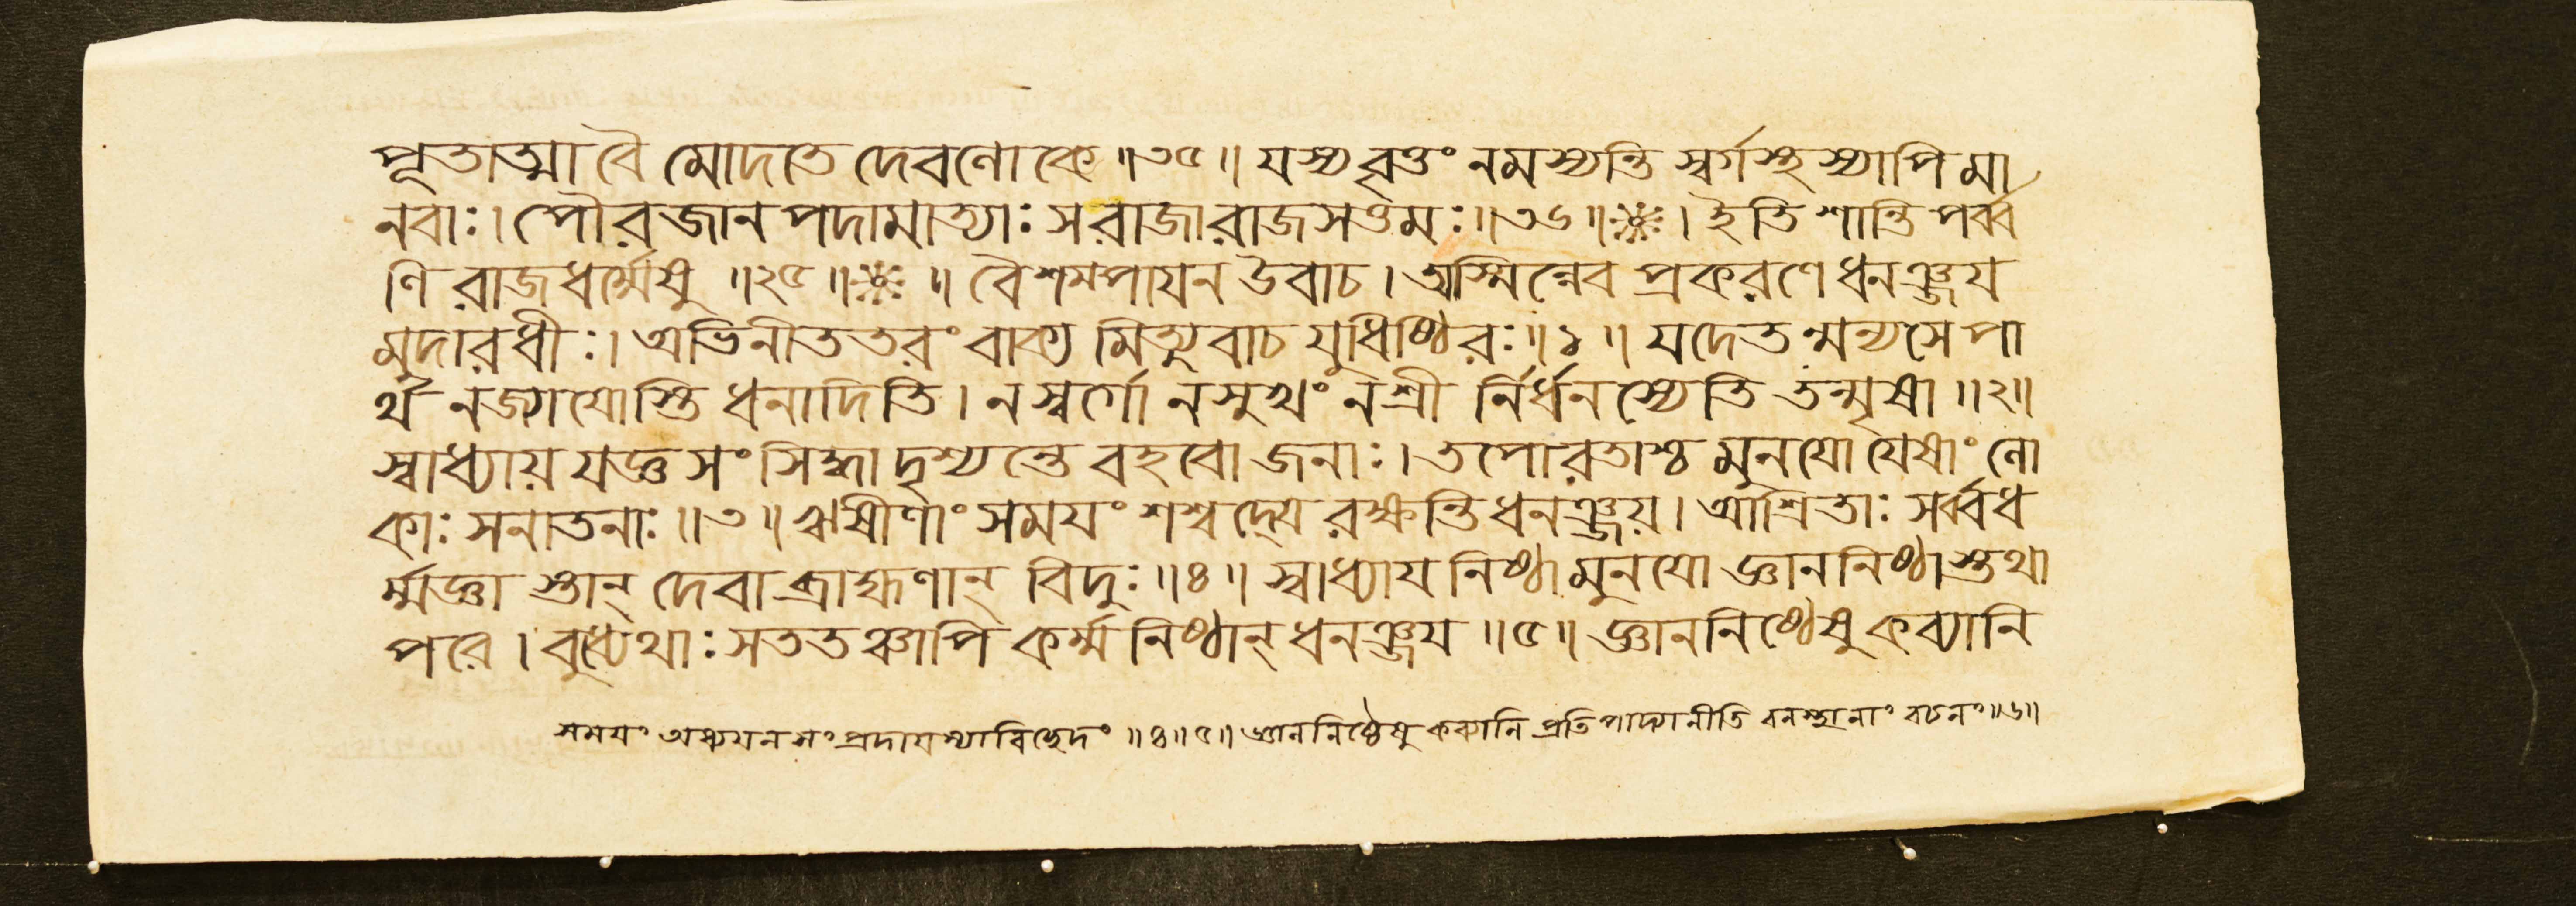 পূতাত্মা বৈ মোদতে দেবলোকে ॥৩৫॥ যস্য বৃত্তং নমস্যন্তি স্বর্গস্থস্যাপি মা
নবাঃ। পৌরজানপদামাত্যাঃ স রাজা রাজসত্তমঃ ॥৩৬॥ । ইতি শান্তিপর্ব্ব
ণি রাজধর্ম্মেষু ॥২৫॥ ॥ বৈশম্পায়ন উবাচ। অস্মিন্নেব প্রকরণে ধনঞ্জয
মুদারধীঃ। অভিনীততরং বাক্য মিত্যুবাচ যুধিষ্ঠিরঃ ॥১॥ যদেতন্মন্যসে পা
র্থ ন জ্যাযোস্তি ধনাদিতি। ন স্বর্গো ন সুখং ন শ্রী র্নির্ধনস্যেতি তন্মৃষা ॥২॥
স্বাধ্যায় যজ্ঞসংসিদ্ধা দৃশ্যন্তে বহবো জনাঃ। তপোরতাশ্চ মুনযো যেষাং লো
কাঃ সনাতনাঃ ॥৩॥ ঋষীণাং সময়ং শশ্বদ্যে রক্ষন্তি ধনঞ্জয়। আশ্রিতাঃ সর্ব্বধ
র্ম্মজ্ঞা স্তান্ দেবা ব্রাহ্মণান্ বিদুঃ ॥৪॥ স্বাধ্যায নিষ্ঠা মুনযো জ্ঞাননিষ্ঠা স্তথা
পরে। বুধ্যেথাঃ সততঞ্চাপি কর্ম্মনিষ্ঠান্ ধনঞ্জয ॥৫॥ জ্ঞাননিষ্ঠেষু কব্যানি
সময়ং অধ্যয়নসংপ্রদাযস্যাবিচ্ছেদং ॥৪॥৫॥ জ্ঞাননিষ্ঠেষু কব্যানি প্রতিপাদ্যানীতি বনস্থানাং বচনং ॥৬॥